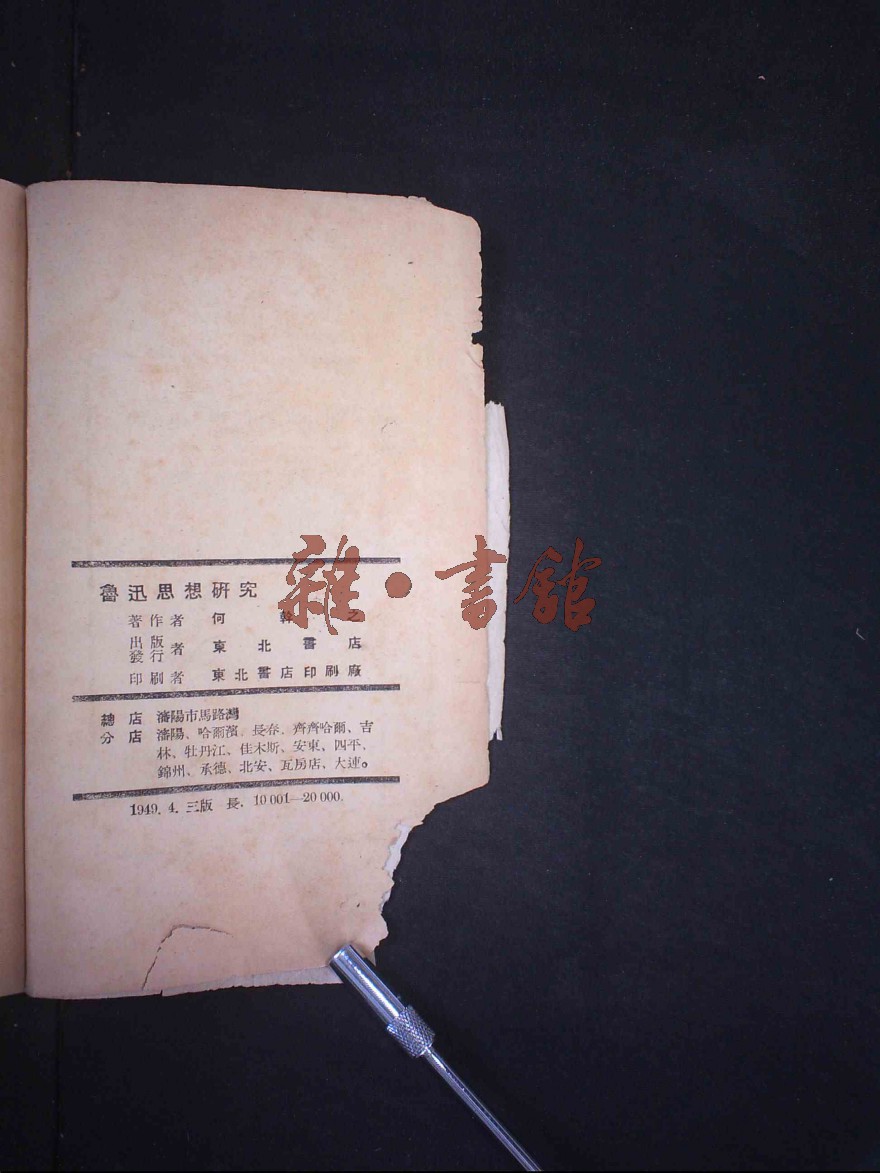 魯迅思想研究
著作者 何幹之
出版
發行者 東北書店
印刷者 東北書店印刷廠
總店 瀋陽市馬路灣
分店 瀋陽、哈爾濱、長春、齊齊哈爾、吉
林、牡丹江、佳木斯、安東、四平、
錦州、承德、北安、瓦房店、大連。
1949. 4. 三版 長. 10 001—20 000.
雜·書館